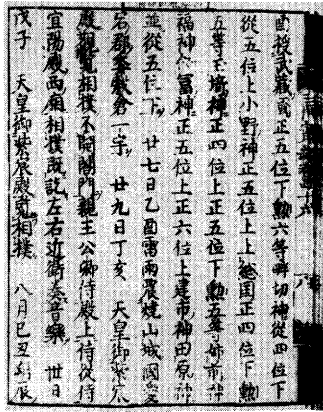 授武藏國正五位下勲六等畔切神從四位下
從五位上小野神正五位上上国正四位下勲
五等玉神正四位上正五位下勲五等姉神
福神富神正五位上正六位上建市神田原神
並從五位下 廿七日乙酉雷雨震燒山城國愛
宕郡倉一宇 廿九日丁亥 天皇御紫宸
殿觀覽相撲不開閤門親王公卿侍殿上侍從侍
宜陽殿西廂相撲既訖左右近衛奏音樂 卅日
戊子 天皇御紫宸殿覽相撲 八月己丑朔辰